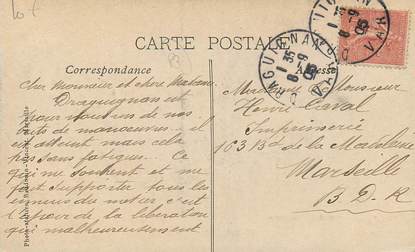 CARTE POSTALE
Correspondance
Adresse
DRAGUIGNAN
1 35
8 -9
05
VAR
Cher Monsieur et chère Madame
Draguignan est
de nos
de manoeuvres. il
est atteint mais cela
pas sans fatigues. Ce
qui me soutient et me
fait supporter tous les
ennuis du métier c'est
l'espoir de la libération
qui malheureusement est
Madame Monsieur
Henri Caval
Imprimerie
163 Bd de la Madeleine
Marseille
B. D. R